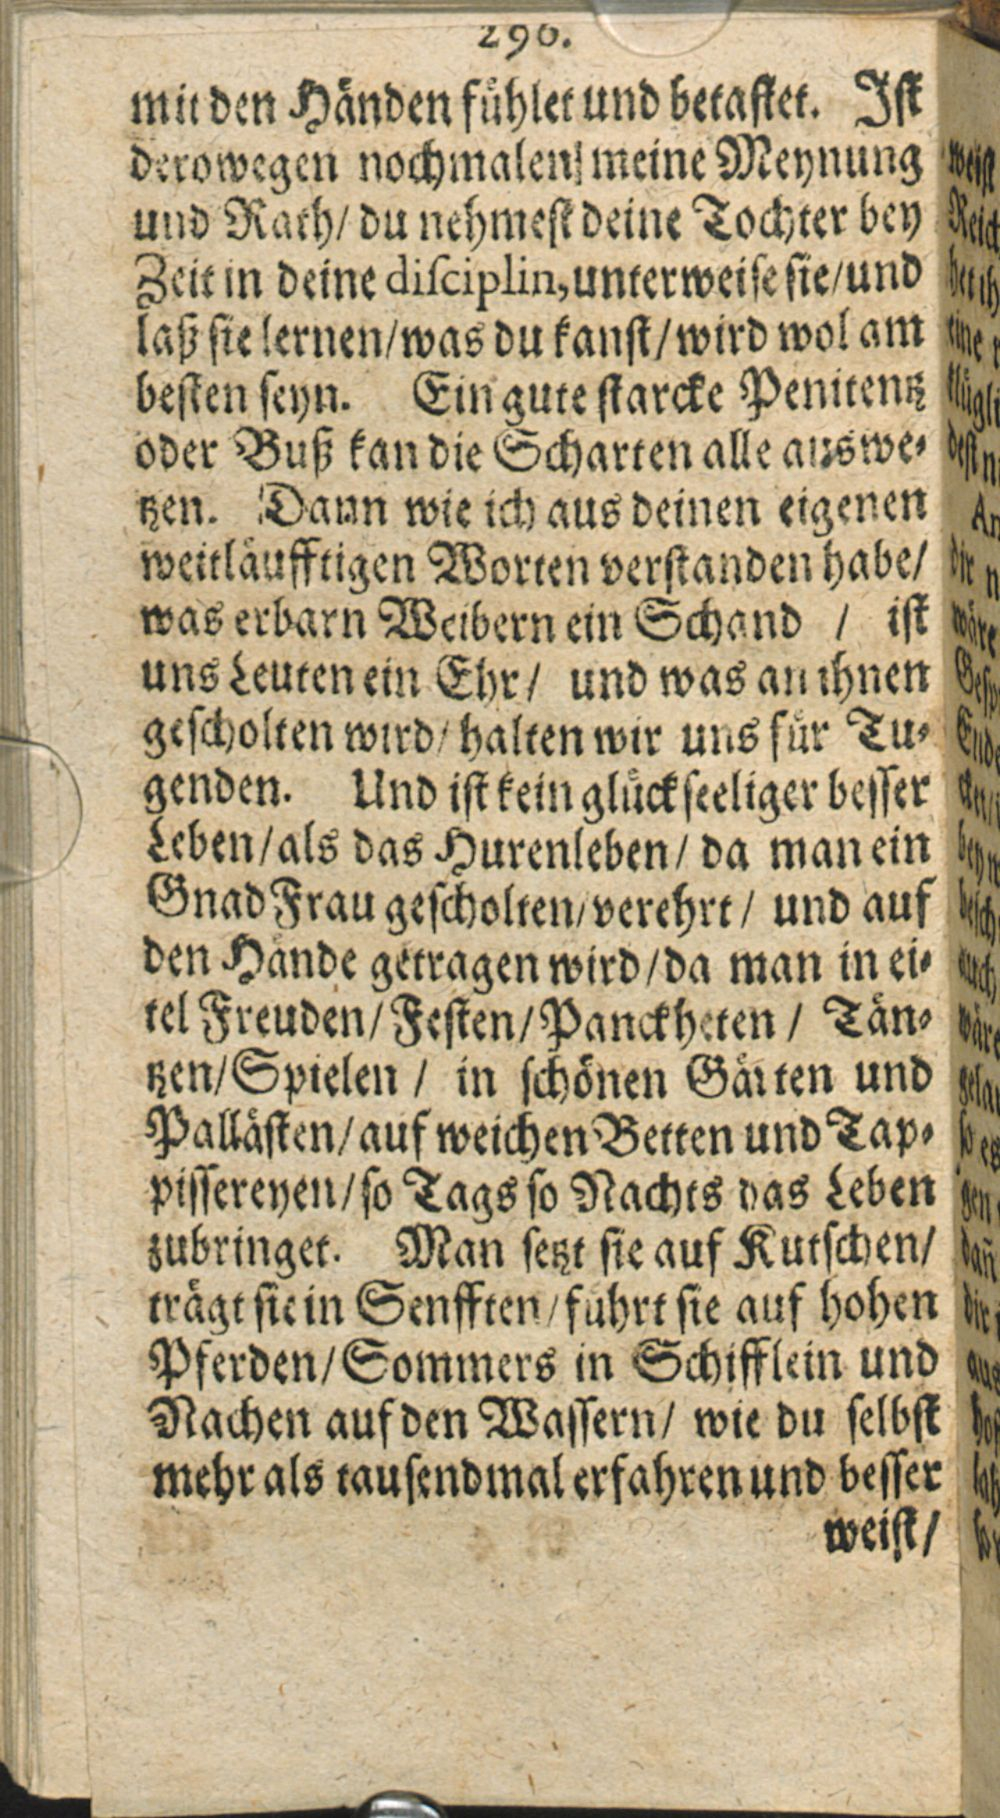 296.
mit den Händen fühlet und betastet. Ist
derowegen nochmalen meine Meynung
und Rath/ du nehmest deine Tochter bey
Zeit in deine disciplin, unterweise sie/und
laß sie lernen/was du kanst/wird wol am
besten seyn. Ein gute starcke Penitentz
oder Buß kan die Scharten alle auswe-
tzen. Dann wie ich aus deinen eigenen
weitläufftigen Worten verstanden habe/
was erbarn Weibern ein Schand / ist
uns Leuten ein Ehr/ und was an ihnen
gescholten wird/ halten wir uns für Tu-
genden. Und ist kein glückseeliger besser
Leben/als das Hurenleben/ da man ein
Gnad Frau gescholten/verehrt/ und auf
den Hände getragen wird/da man in ei-
tel Freuden/Festen/Panckheten / Tän-
tzen/Spielen / in schönen Gärten und
Pallästen/auf weichen Betten und Tap-
pissereyen/so Tags so Nachts das Leben
zubringet. Man setzt sie auf Kutschen/
trägt sie in Senfften/führt sie auf hohen
Pferden/Sommers in Schifflein und
Nachen auf den Wassern/ wie du selbst
mehr als tausendmal erfahren und besser
weist/